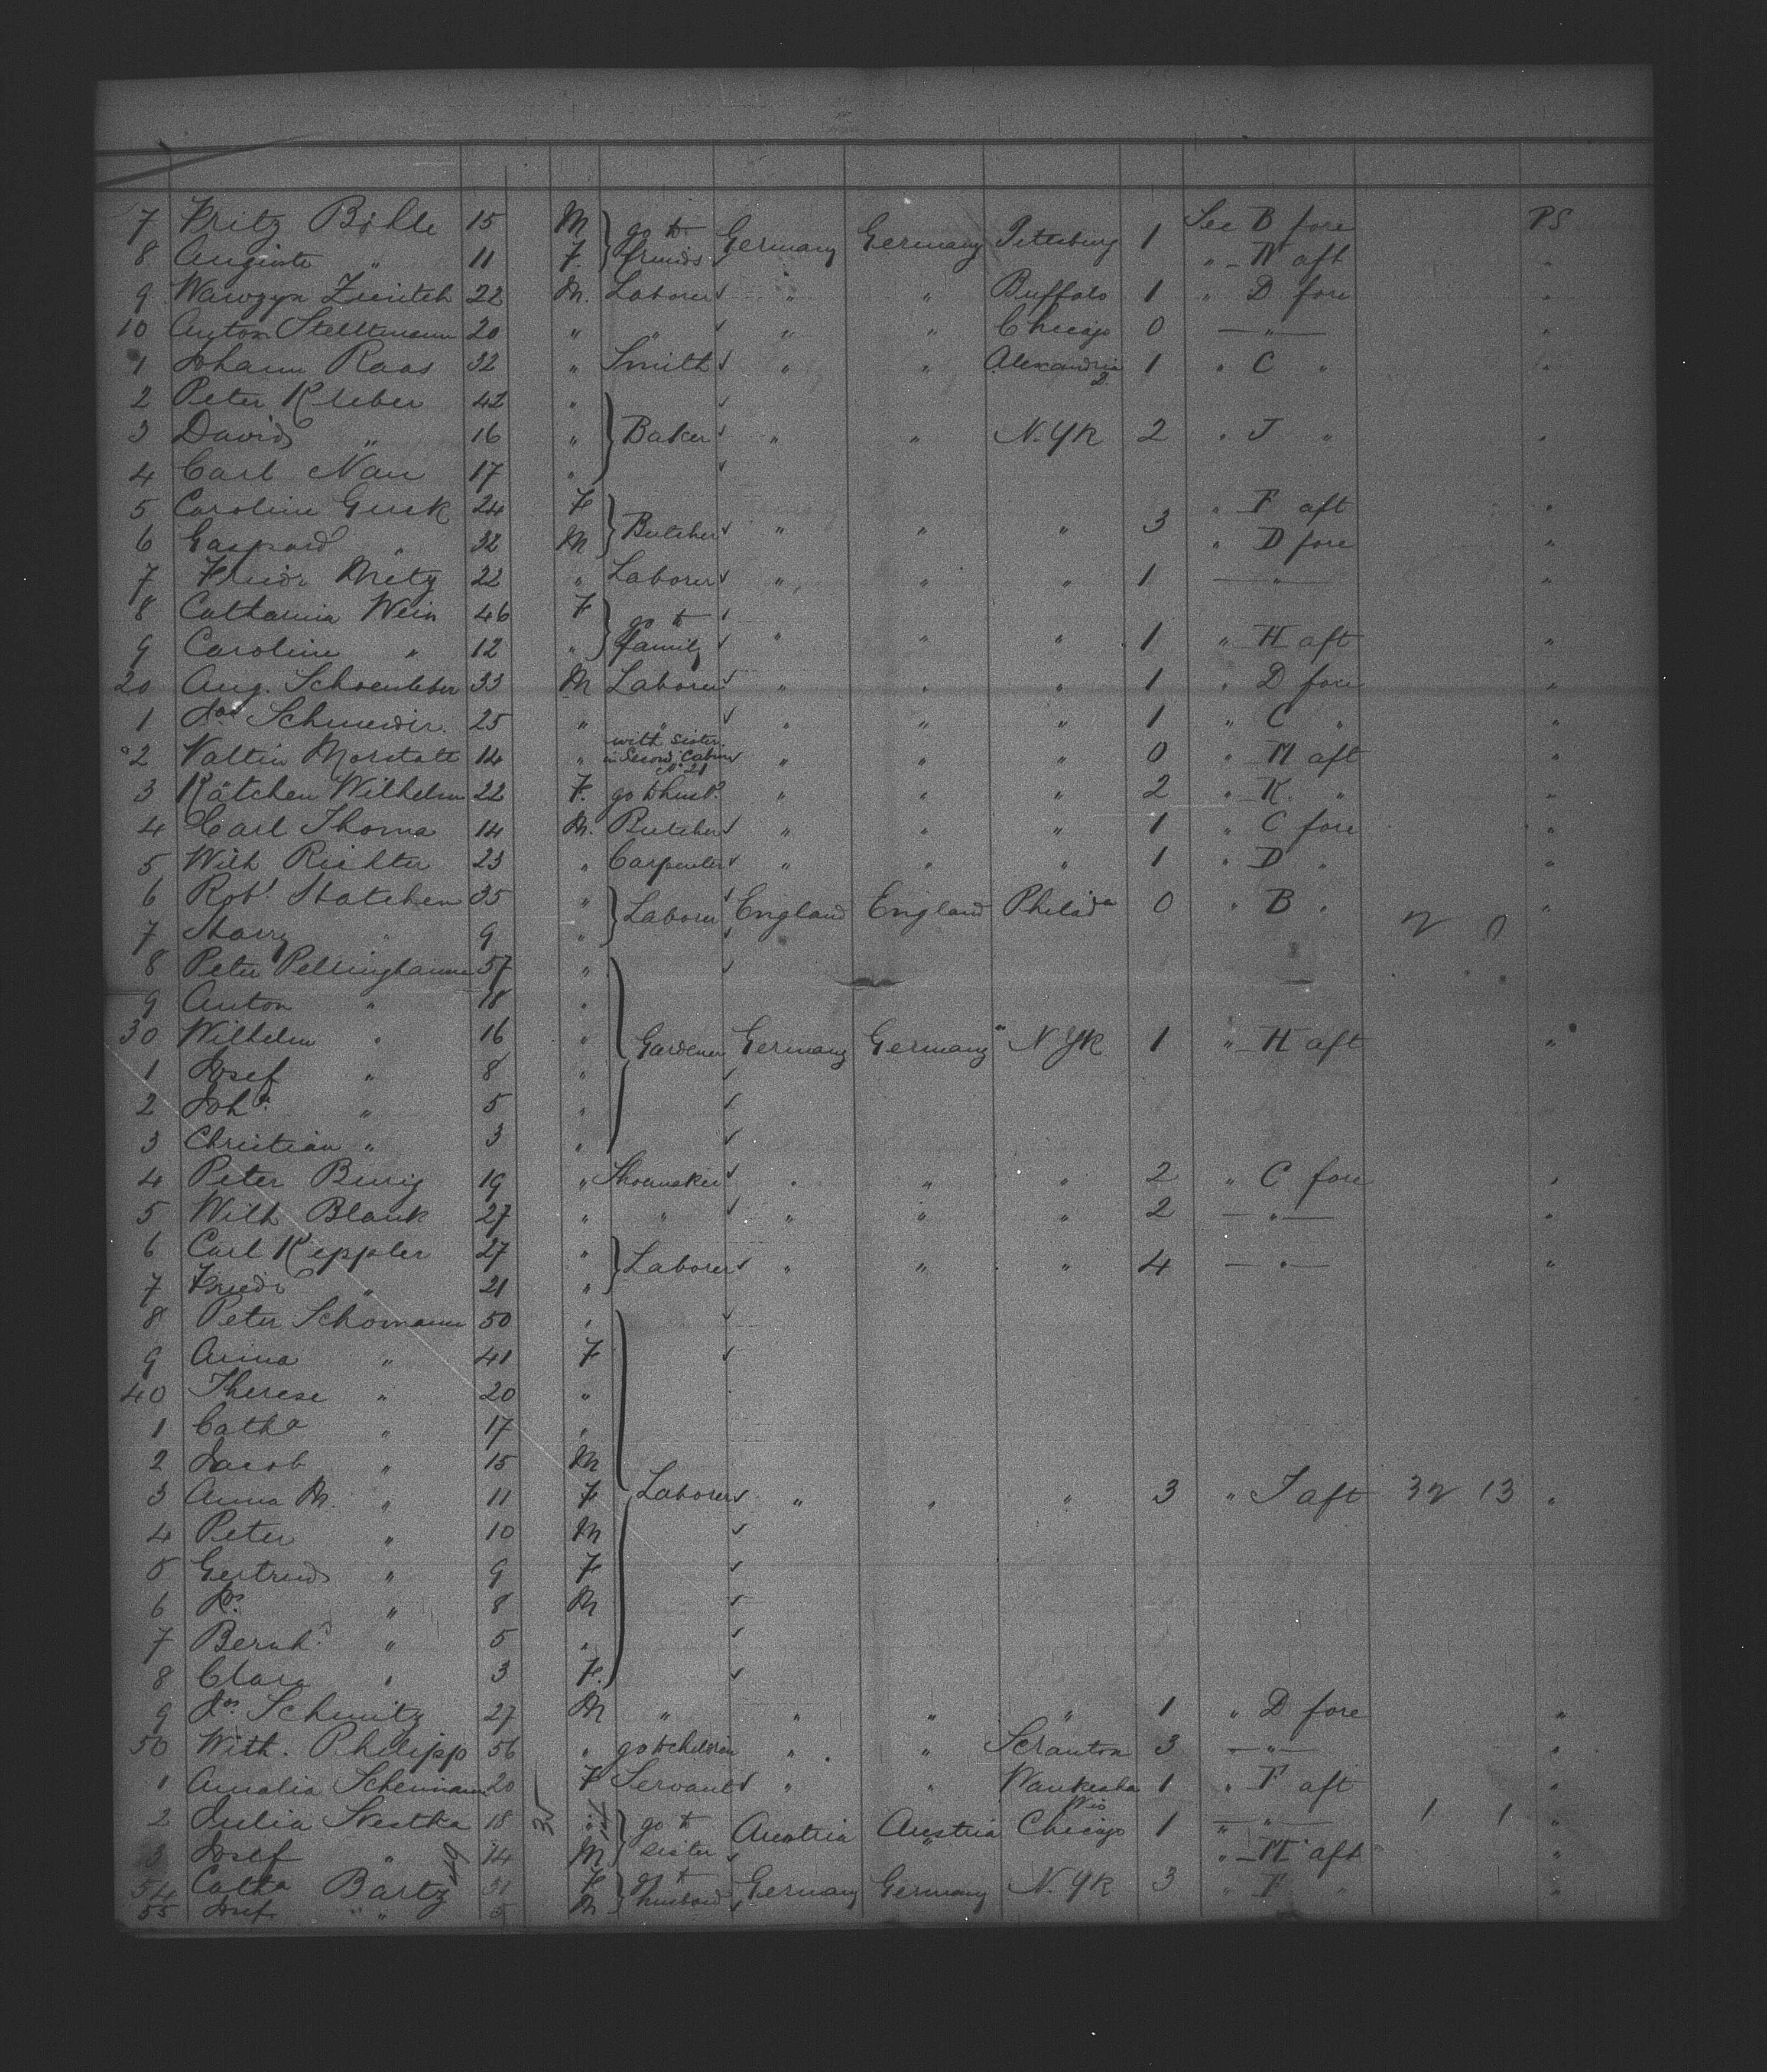 7 Fritz Böhle 15 M go to Germany Germany Pittsburg 1 See B fore PS
8 Auguste " 11 F. friends " N aft "
9 22 M. Laborer " " Buffalo 1 " D fore "
10 Anton 20 " " " " Chicago 0 — " — "
1 Johann Raas 32 " Smith " " Alexandria 1 " C " "
2 Peter Kleber 42 "
3 David " 16 " Baker " " N. Yk 2 " J " "
4 Carl Nau 17 "
5 Caroline Gusk 24 F Butcher " " " 3 " F aft "
6 Gaspard " 32 M " D fore "
7 Friedr Metz 22 " Laborer " " " 1 — " — "
8 Catharina Wein 46 F go to
9 Caroline " 12 " family " " " 1 " H aft "
20 Aug. 33 M Laborer " " " 1 " D fore "
1 Jos 25 " " " " " 1 " C " "
2 Valtin Morstatt 14 " with sister in Second Cabin No 21 " " " 0 " M aft "
3 Kätchen Wilhelm 22 F. go to husb. " " " 2 " K. " "
4 Carl Thoma 14 M. Butcher " " " 1 " C fore "
5 Wilh Richter 23 " Carpenter " " " 1 " D " "
6 Robt. 35 " Laborer England England Philada 0 " B " "
7 Harry " 9 " 2 0
8 Peter 57 "
9 Anton " 18 "
30 Wilhelm " 16 " Gardener Germany Germany N Yk 1 " H aft "
1 Josef " 8 "
2 Joha " 5 "
3 Christian " 3 "
4 Peter 19 " Shoemaker " " " 2 " C fore "
5 Wilh Blank 27 " " " " " 2 — " — "
6 Carl Keppler 27 " Laborer " " " 4 — " — "
7 Friedr " 21 "
8 Peter Schomann 50 "
9 Anna " 41 F
40 Therese " 20 "
1 Catha " 17 "
2 Jacob " 15 M
3 Anna M. " 11 F Laborer " " " 3 " J aft 32 13 "
4 Peter " 10 M
5 Gertrud " 9 F
6 Jos. " 8 M
7 Bernhd " 5 "
8 Clara " 3 F.
9 Jos. Schmitz 27 M " " " " 1 " D fore "
50 With. Philipp 56 " go to children " " Scranton 3 — " — "
1 Amalia 20 F Servant " " Waukesha Wis 1 " F aft "
2 Julia 18 " go to Austria Austria Chicago 1 " — " — 1 1 "
3 Josef " 14 M sister " M aft "
54 Catha Bartz 31 F go to Germany Germany N. Yk 3 " F " "
55 Josef " " 5 M husband